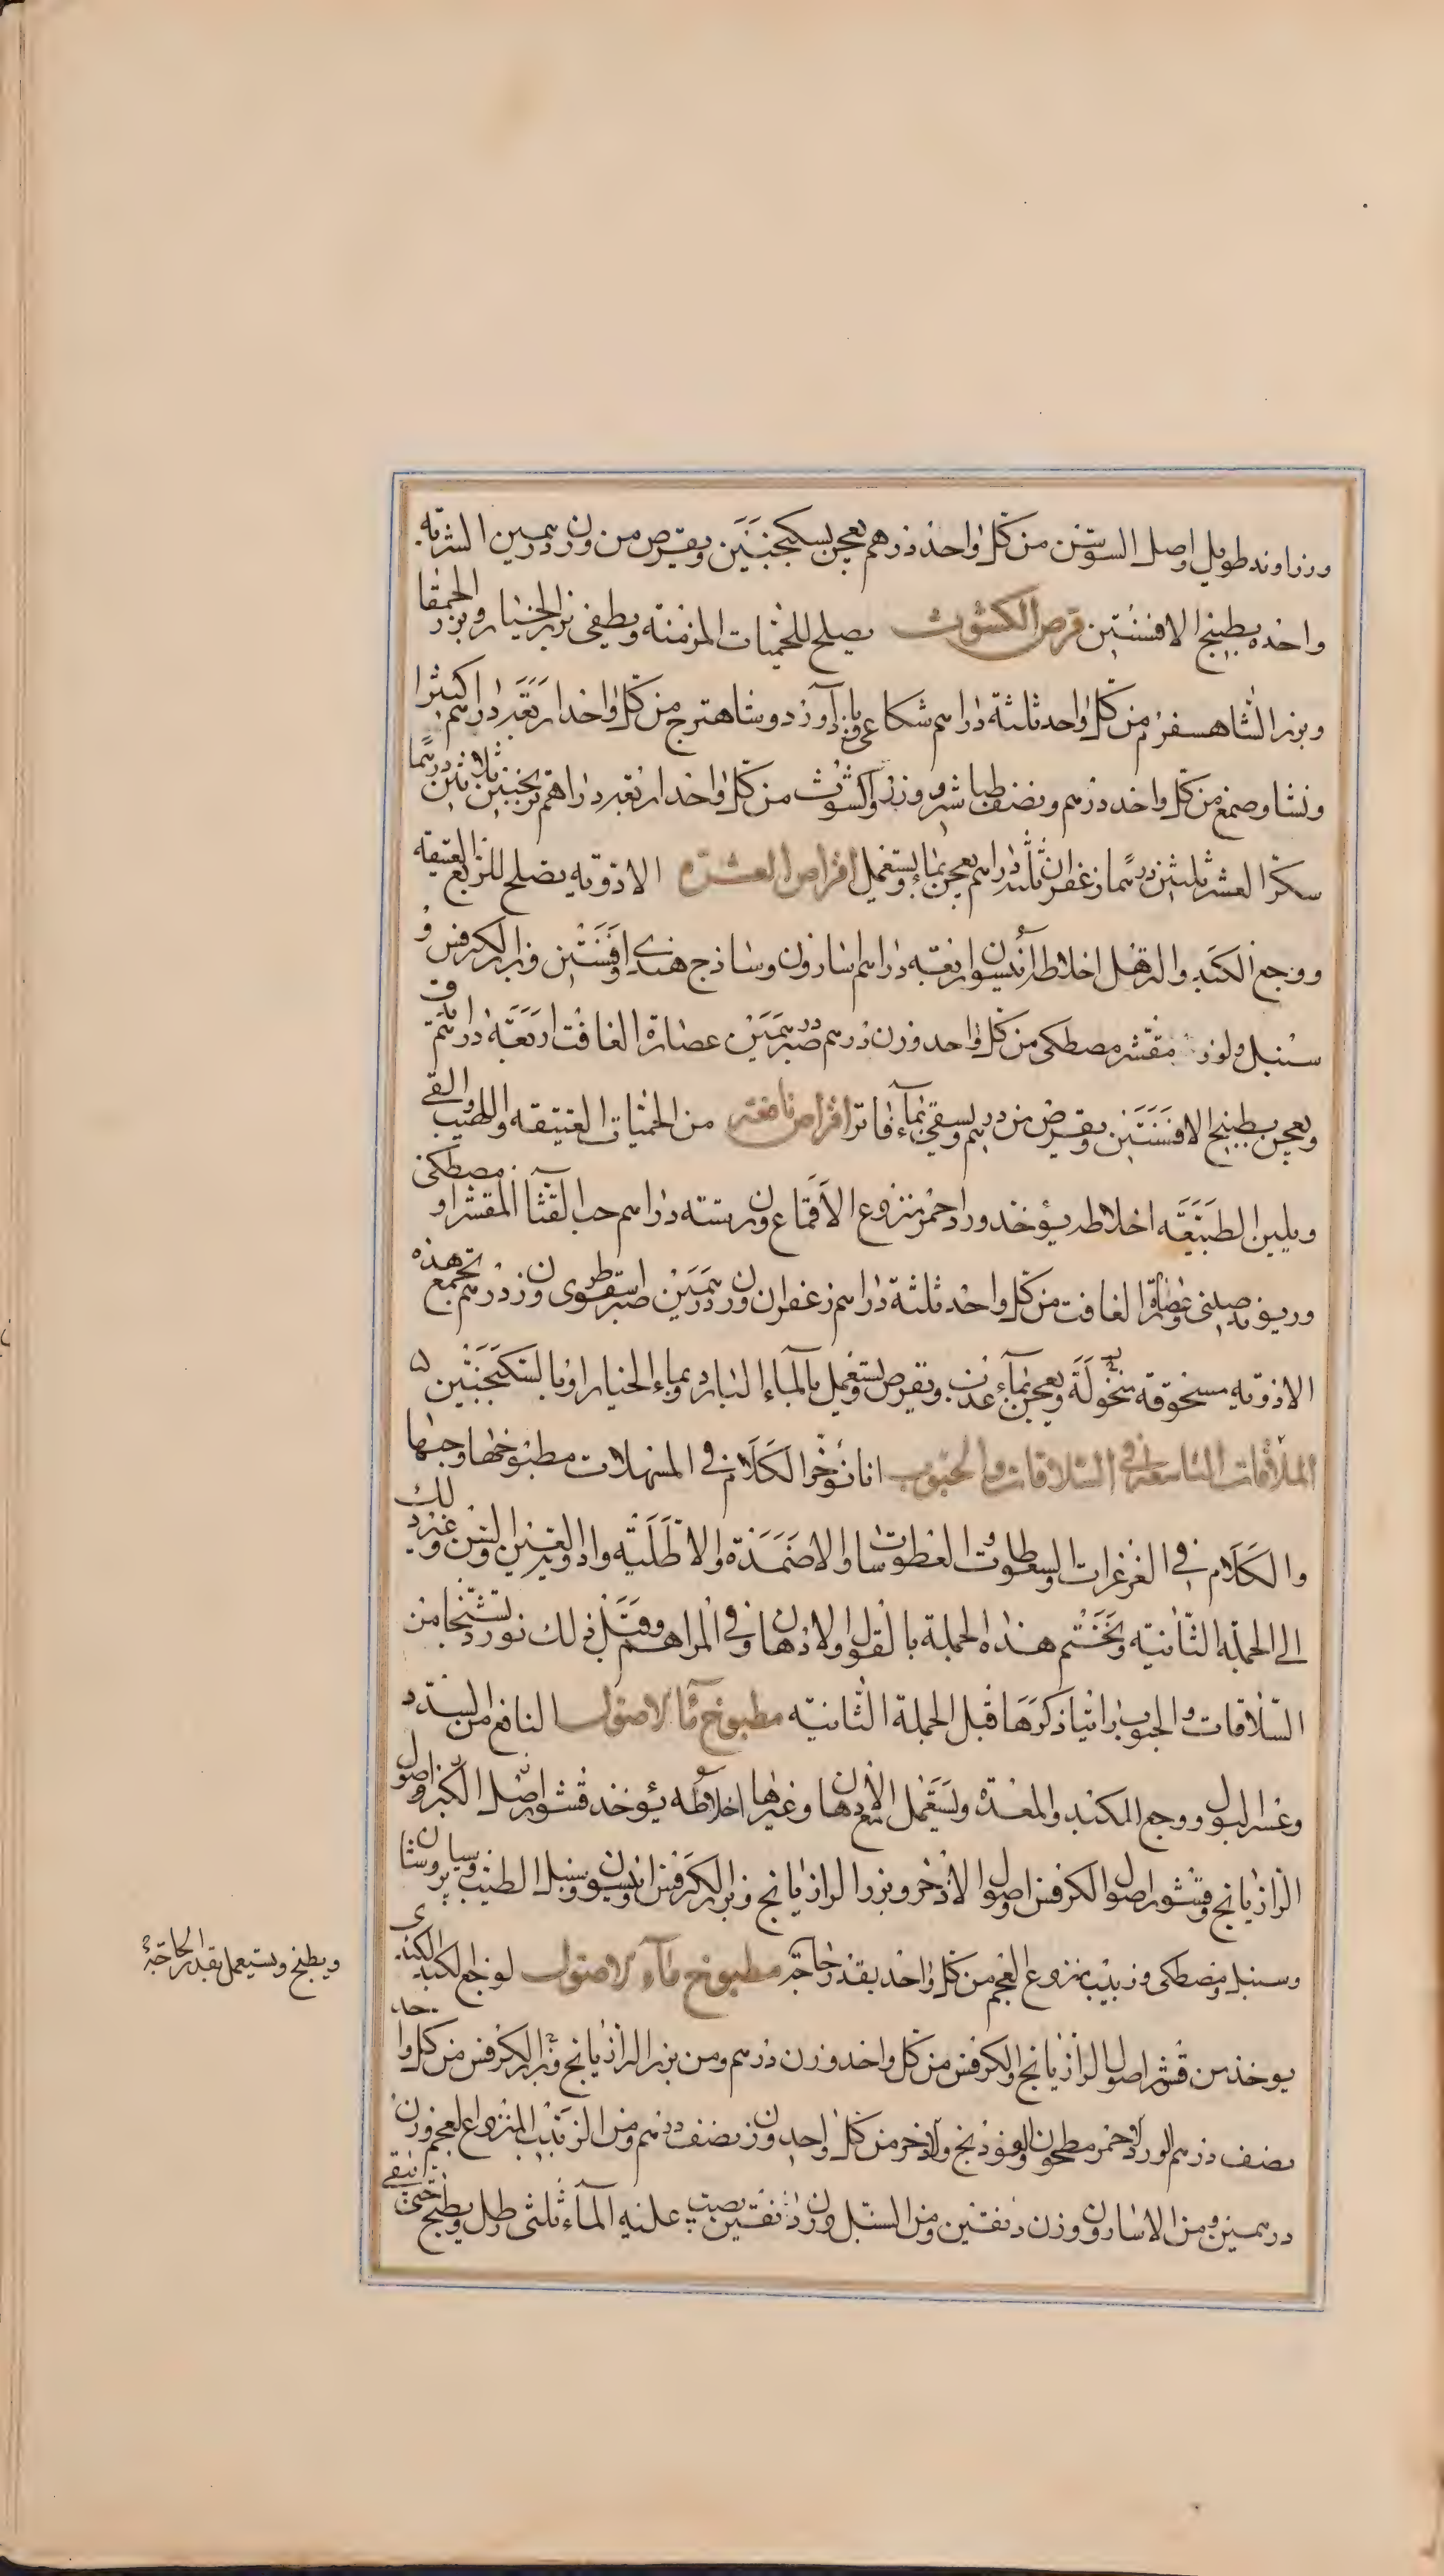 وزراوند طويل واصل السوسن من كل واحد درهم يعجن بسكنجبين ويقرص من وزن درهمين الشربة
واحدة بطبيخ الافسنتين قرص الكشوث يصلح للحميات المزمنة ويطفى بزر الخيار وبزر الحمقا
وبزر الشاهسفرم من كل واحد ثلثة دراهم شكاعى وباذآورد وشاهترج من كل واحد اربعة دراهم كثيرا
ونشا وصمغ من كل واحد درهم ونصف طباشير وورد وكشوث من كل واحد اربعة دراهم ترنجبين ثلاثين درهما
سكر العشر ثلثين درهما زعفران ثلثة دراهم يعجن بماء ويستعمل اقراص العشرة الادوية يصلح للربع العتيقة
ووجع الكبد والترهل اخلاطه انيسون اربعة دراهم اسارون وساذج هندى وافسنتين وبزر الكرفس و
سنبل ولوز مقشر مصطكى من كل واحد وزن درهم صبر درهمين عصارة الغافت اربعة دراهم يدق
ويعجن بطبيخ الافسنتين ويقرص من درهم ويسقى بماء فاتر اقراص نافعة من الحميات العتيقة واللهيب والقى
ويلين الطبيعة اخلاطه يؤخذ ورد احمر منزوع الاقماع وزن ستة دراهم حب القثا المقشر او مصطكى
وريوند صينى وعصارة الغافت من كل واحد ثلثة دراهم زعفران وزن درهمين صبر اسقطرى وزن درهم تجمع هذه
الادوية مسحوقة منخولة ويعجن بماء عذب ويقرص ويستعمل بالماء البارد وبماء الخيار او بالسكنجبين
المقالة التاسعة فى السلاقات والحبوب انا نؤخر الكلام فى المسهلات مطبوخها وحبها
والكلام فى الغرغرات والسعوطات والعطوسات والاضمدة والاطلية وادوية العين والسن وغير ذلك
الى الجملة الثانية ونختم هذه الجملة بالقول فى الادهان وفى المراهم وقبل ذلك نورد نسخا من
السلاقات والحبوب راينا ذكرها قبل الجملة الثانية مطبوخ ماء الاصول النافع من السدد
وعسر البول ووجع الكبد والمعدة ويستعمل مع الادهان وغيرها اخلاطه يؤخذ قشور اصل الكبر واصول
الرازيانج وقشور اصول الكرفس واصول الاذخر وبزر الرازيانج وبزر الكرفس وانيسون وسنبل الطيب وسيساليوس
وسنبل ومصطكى وزبيب منزوع العجم من كل واحد بقدر حاجة مطبوخ ماء الاصول لوجع الكبد
ويطبخ ويستعمل بقدر الحاجة
يوخذ من قشر اصول الرازيانج والكرفس من كل واحد وزن درهم ومن بزر الرازيانج وبزر الكرفس من كل واحد
نصف درهم الورد الاحمر مطحون والفوذنج والاذخر من كل واحد وزن نصف درهم ومن الزبيب المنزوع العجم وزن
درهمين ومن الاسارون وزن دنقتين ومن السنبل وزن دنقتين يصب عليه الماء ثلثى رطل ويطبخ حتى يبقى